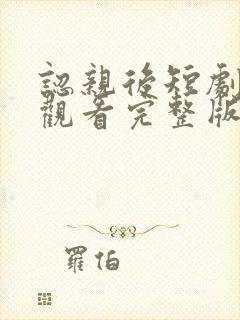 認親後短劇
觀看完整版
羅伯